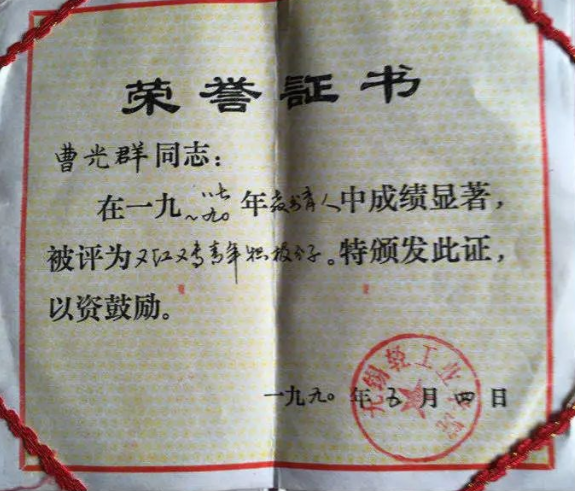 荣誉証书
曹光群同志:
在一九八七~九〇年教书育人中成绩显著,
被评为又红又专青年积极分子。特颁发此证,
以资鼓励。
无锡轻工业学院
一九九〇年五月四日